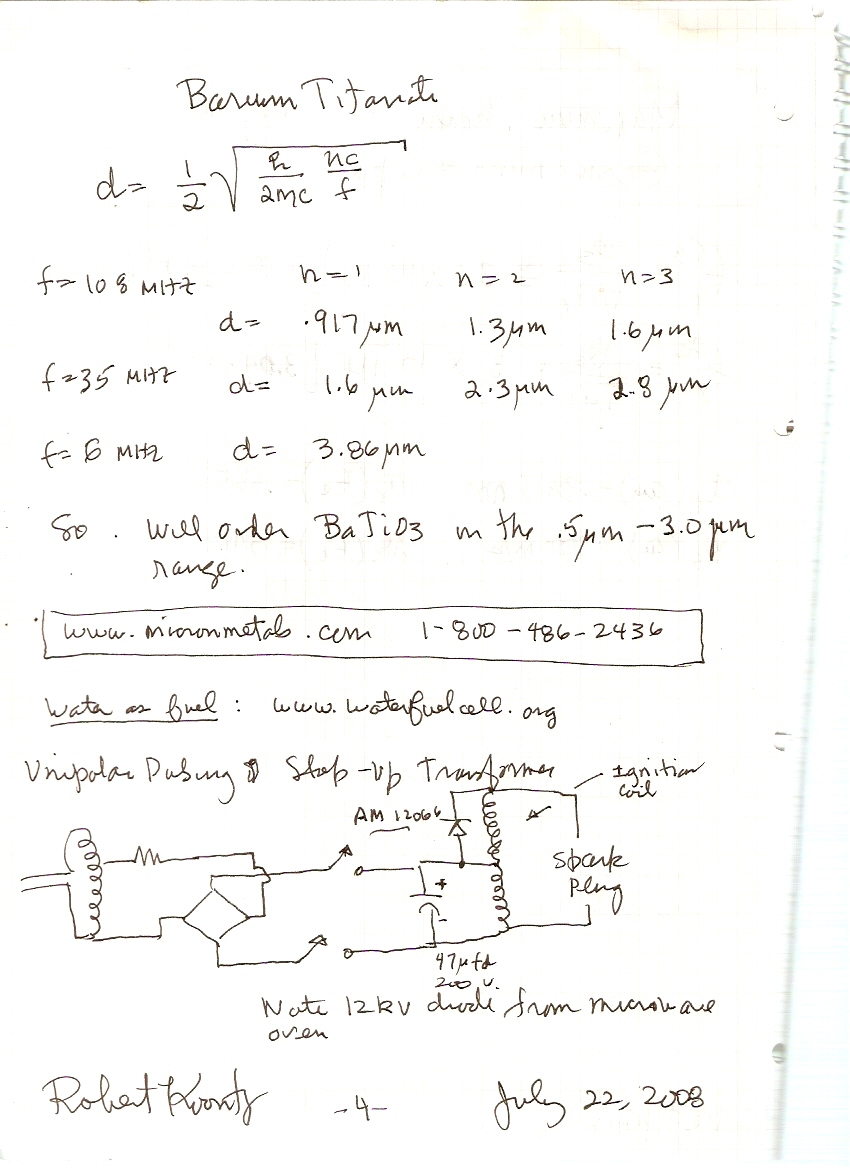 Barium Titanate
d = 1/2 √(h/2mc nc/f)
f = 108 MHz n = 1 n = 2 n = 3
d = .917 μm 1.3 μm 1.6 μm
f = 35 MHz d = 1.6 μm 2.3 μm 2.8 μm
f = 6 MHz d = 3.86 μm
So . Will order BaTiO3 in the .5 μm - 3.0 μm
range.
www.micronmetals.com 1-800-486-2436
Water as fuel : www.waterfuelcell.org
Unipolar Pulsing Step-up Transformer
Ignition
coil
AM 12066
Spark
Plug
+
-
47 μfd
200 v.
Note 12kV diode from microwave
oven
Robert Koontz -4- July 22, 2008